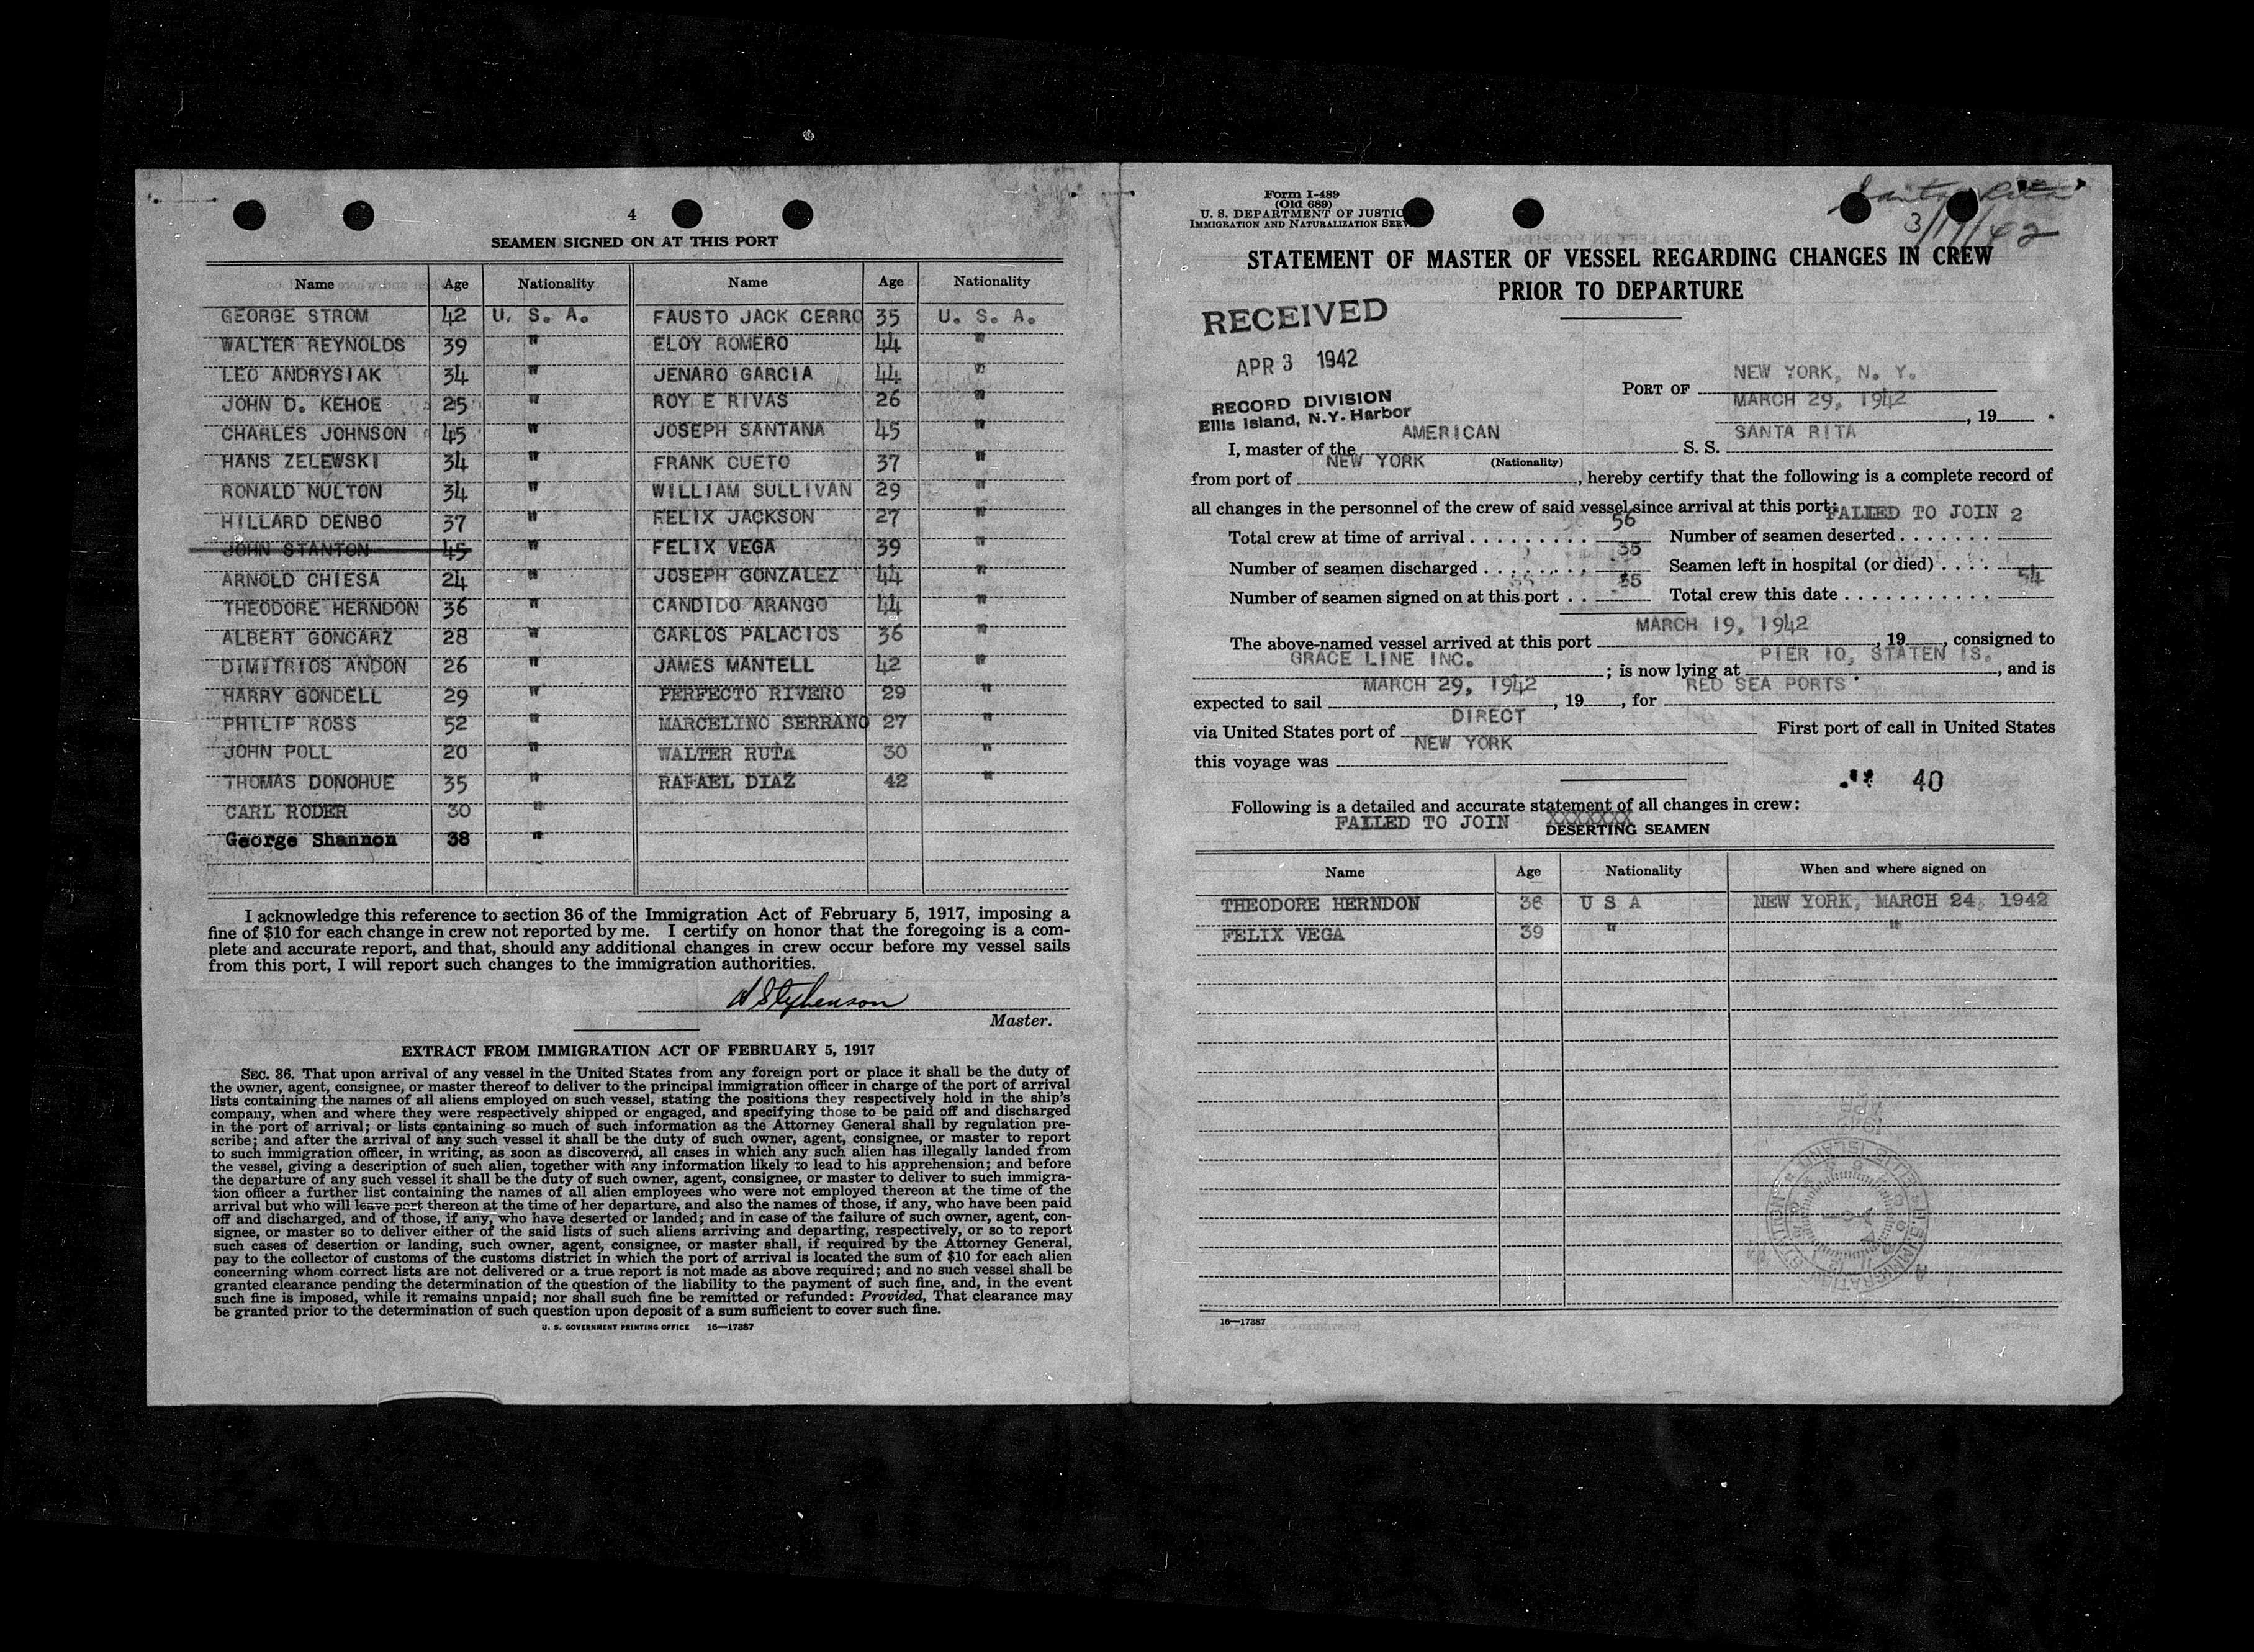 4
SEAMEN SIGNED ON AT THIS PORT
Name Age Nationality Name Age Nationality
GEORGE STROM 42 U. S. A. FAUSTO JACK CERRO 35 U. S. A.
WALTER REYNOLDS 39 " ELOY ROMERO 44 "
LEO ANDRYSIAK 34 " JENARO GARCIA 44 "
JOHN D. KEHOE 25 " ROY E RIVAS 26 "
CHARLES JOHNSON 45 " JOSEPH SANTANA 45 "
HANS ZELEWSKI 34 " FRANK CUETO 37 "
RONALD NULTON 34 " WILLIAM SULLIVAN 29 "
HILLARD DENBO 37 " FELIX JACKSON 27 "
JOHN STANTON 45 " FELIX VEGA 39 "
ARNOLD CHIESA 24 " JOSEPH GONZALEZ 44 "
THEODORE HERNDON 36 " CANDIDO ARANGO 44 "
ALBERT GONCARZ 28 " CARLOS PALACIOS 36 "
DIMITRIOS ANDON 26 " JAMES MANTELL 42 "
HARRY GONDELL 29 " PERFECTO RIVERO 29 "
PHILIP ROSS 52 " MARCELINO SERRANO 27 "
JOHN POLL 20 " WALTER RUTA 30 "
THOMAS DONOHUE 35 " RAFAEL DIAZ 42 "
CARL RODER 30 "
George Shannon 38 "
I acknowledge this reference to section 36 of the Immigration Act of February 5, 1917, imposing a
fine of $10 for each change in crew not reported by me. I certify on honor that the foregoing is a com-
plete and accurate report, and that, should any additional changes in crew occur before my vessel sails
from this port, I will report such changes to the immigration authorities.
H Stephenson
Master.
EXTRACT FROM IMMIGRATION ACT OF FEBRUARY 5, 1917
SEC. 36. That upon arrival of any vessel in the United States from any foreign port or place it shall be the duty of
the owner, agent, consignee, or master thereof to deliver to the principal immigration officer in charge of the port of arrival
lists containing the names of all aliens employed on such vessel, stating the positions they respectively hold in the ship's
company, when and where they were respectively shipped or engaged, and specifying those to be paid off and discharged
in the port of arrival; or lists containing so much of such information as the Attorney General shall by regulation pre-
scribe; and after the arrival of any such vessel it shall be the duty of such owner, agent, consignee, or master to report
to such immigration officer, in writing, as soon as discovered, all cases in which any such alien has illegally landed from
the vessel, giving a description of such alien, together with any information likely to lead to his apprehension; and before
the departure of any such vessel it shall be the duty of such owner, agent, consignee, or master to deliver to such immigra-
tion officer a further list containing the names of all alien employees who were not employed thereon at the time of the
arrival but who will leave port thereon at the time of her departure, and also the names of those, if any, who have been paid
off and discharged, and of those, if any, who have deserted or landed; and in case of the failure of such owner, agent, con-
signee, or master so to deliver either of the said lists of such aliens arriving and departing, respectively, or so to report
such cases of desertion or landing, such owner, agent, consignee, or master shall, if required by the Attorney General,
pay to the collector of customs of the customs district in which the port of arrival is located the sum of $10 for each alien
concerning whom correct lists are not delivered or a true report is not made as above required; and no such vessel shall be
granted clearance pending the determination of the question of the liability to the payment of such fine, and, in the event
such fine is imposed, while it remains unpaid; nor shall such fine be remitted or refunded: Provided, That clearance may
be granted prior to the determination of such question upon deposit of a sum sufficient to cover such fine.
U. S. GOVERNMENT PRINTING OFFICE 16—17387
Form I-489
(Old 689)
U. S. DEPARTMENT OF JUSTIC
IMMIGRATION AND NATURALIZATION SERV
Santa Rita
3/19/42
STATEMENT OF MASTER OF VESSEL REGARDING CHANGES IN CREW
PRIOR TO DEPARTURE
RECEIVED
APR 3 1942
RECORD DIVISION
Ellis Island, N.Y. Harbor
PORT OF NEW YORK, N. Y.
MARCH 29, 1942, 19
I, master of the AMERICAN S. S. SANTA RITA
(Nationality)
from port of NEW YORK, hereby certify that the following is a complete record of
all changes in the personnel of the crew of said vessel since arrival at this port:
FAILED TO JOIN 2
Total crew at time of arrival 56 Number of seamen deserted
Number of seamen discharged 35 Seamen left in hospital (or died)
Number of seamen signed on at this port 35 Total crew this date 54
The above-named vessel arrived at this port MARCH 19, 1942, 19, consigned to
GRACE LINE INC.; is now lying at PIER 10, STATEN IS., and is
expected to sail MARCH 29, 1942, 19, for RED SEA PORTS
via United States port of DIRECT First port of call in United States
this voyage was NEW YORK
40
Following is a detailed and accurate statement of all changes in crew:
FAILED TO JOIN XXXXXXX
DESERTING SEAMEN
Name Age Nationality When and where signed on
THEODORE HERNDON 36 U S A NEW YORK, MARCH 24, 1942
FELIX VEGA 39 " "
16—17387